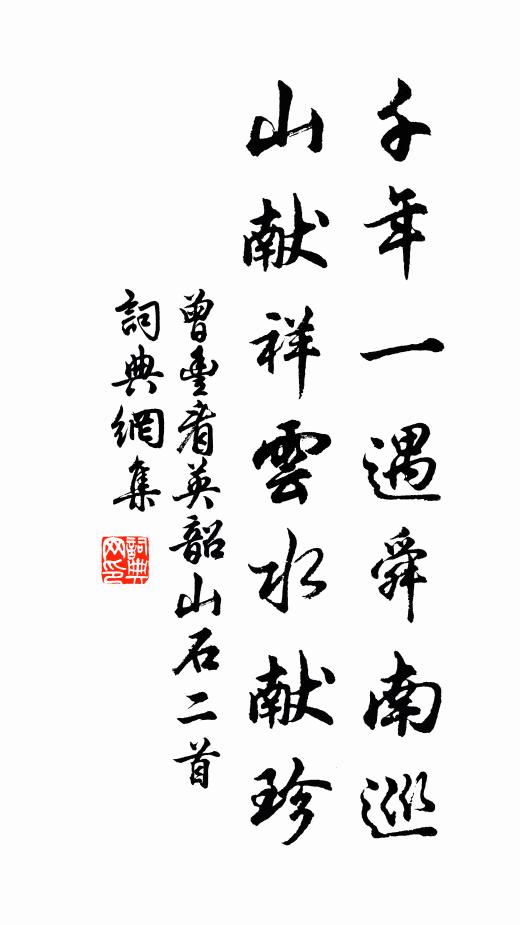 千年一遇舜南巡
山献祥雲水献珍
曾豐看英韶山石二首
詞典網集
詞典网印